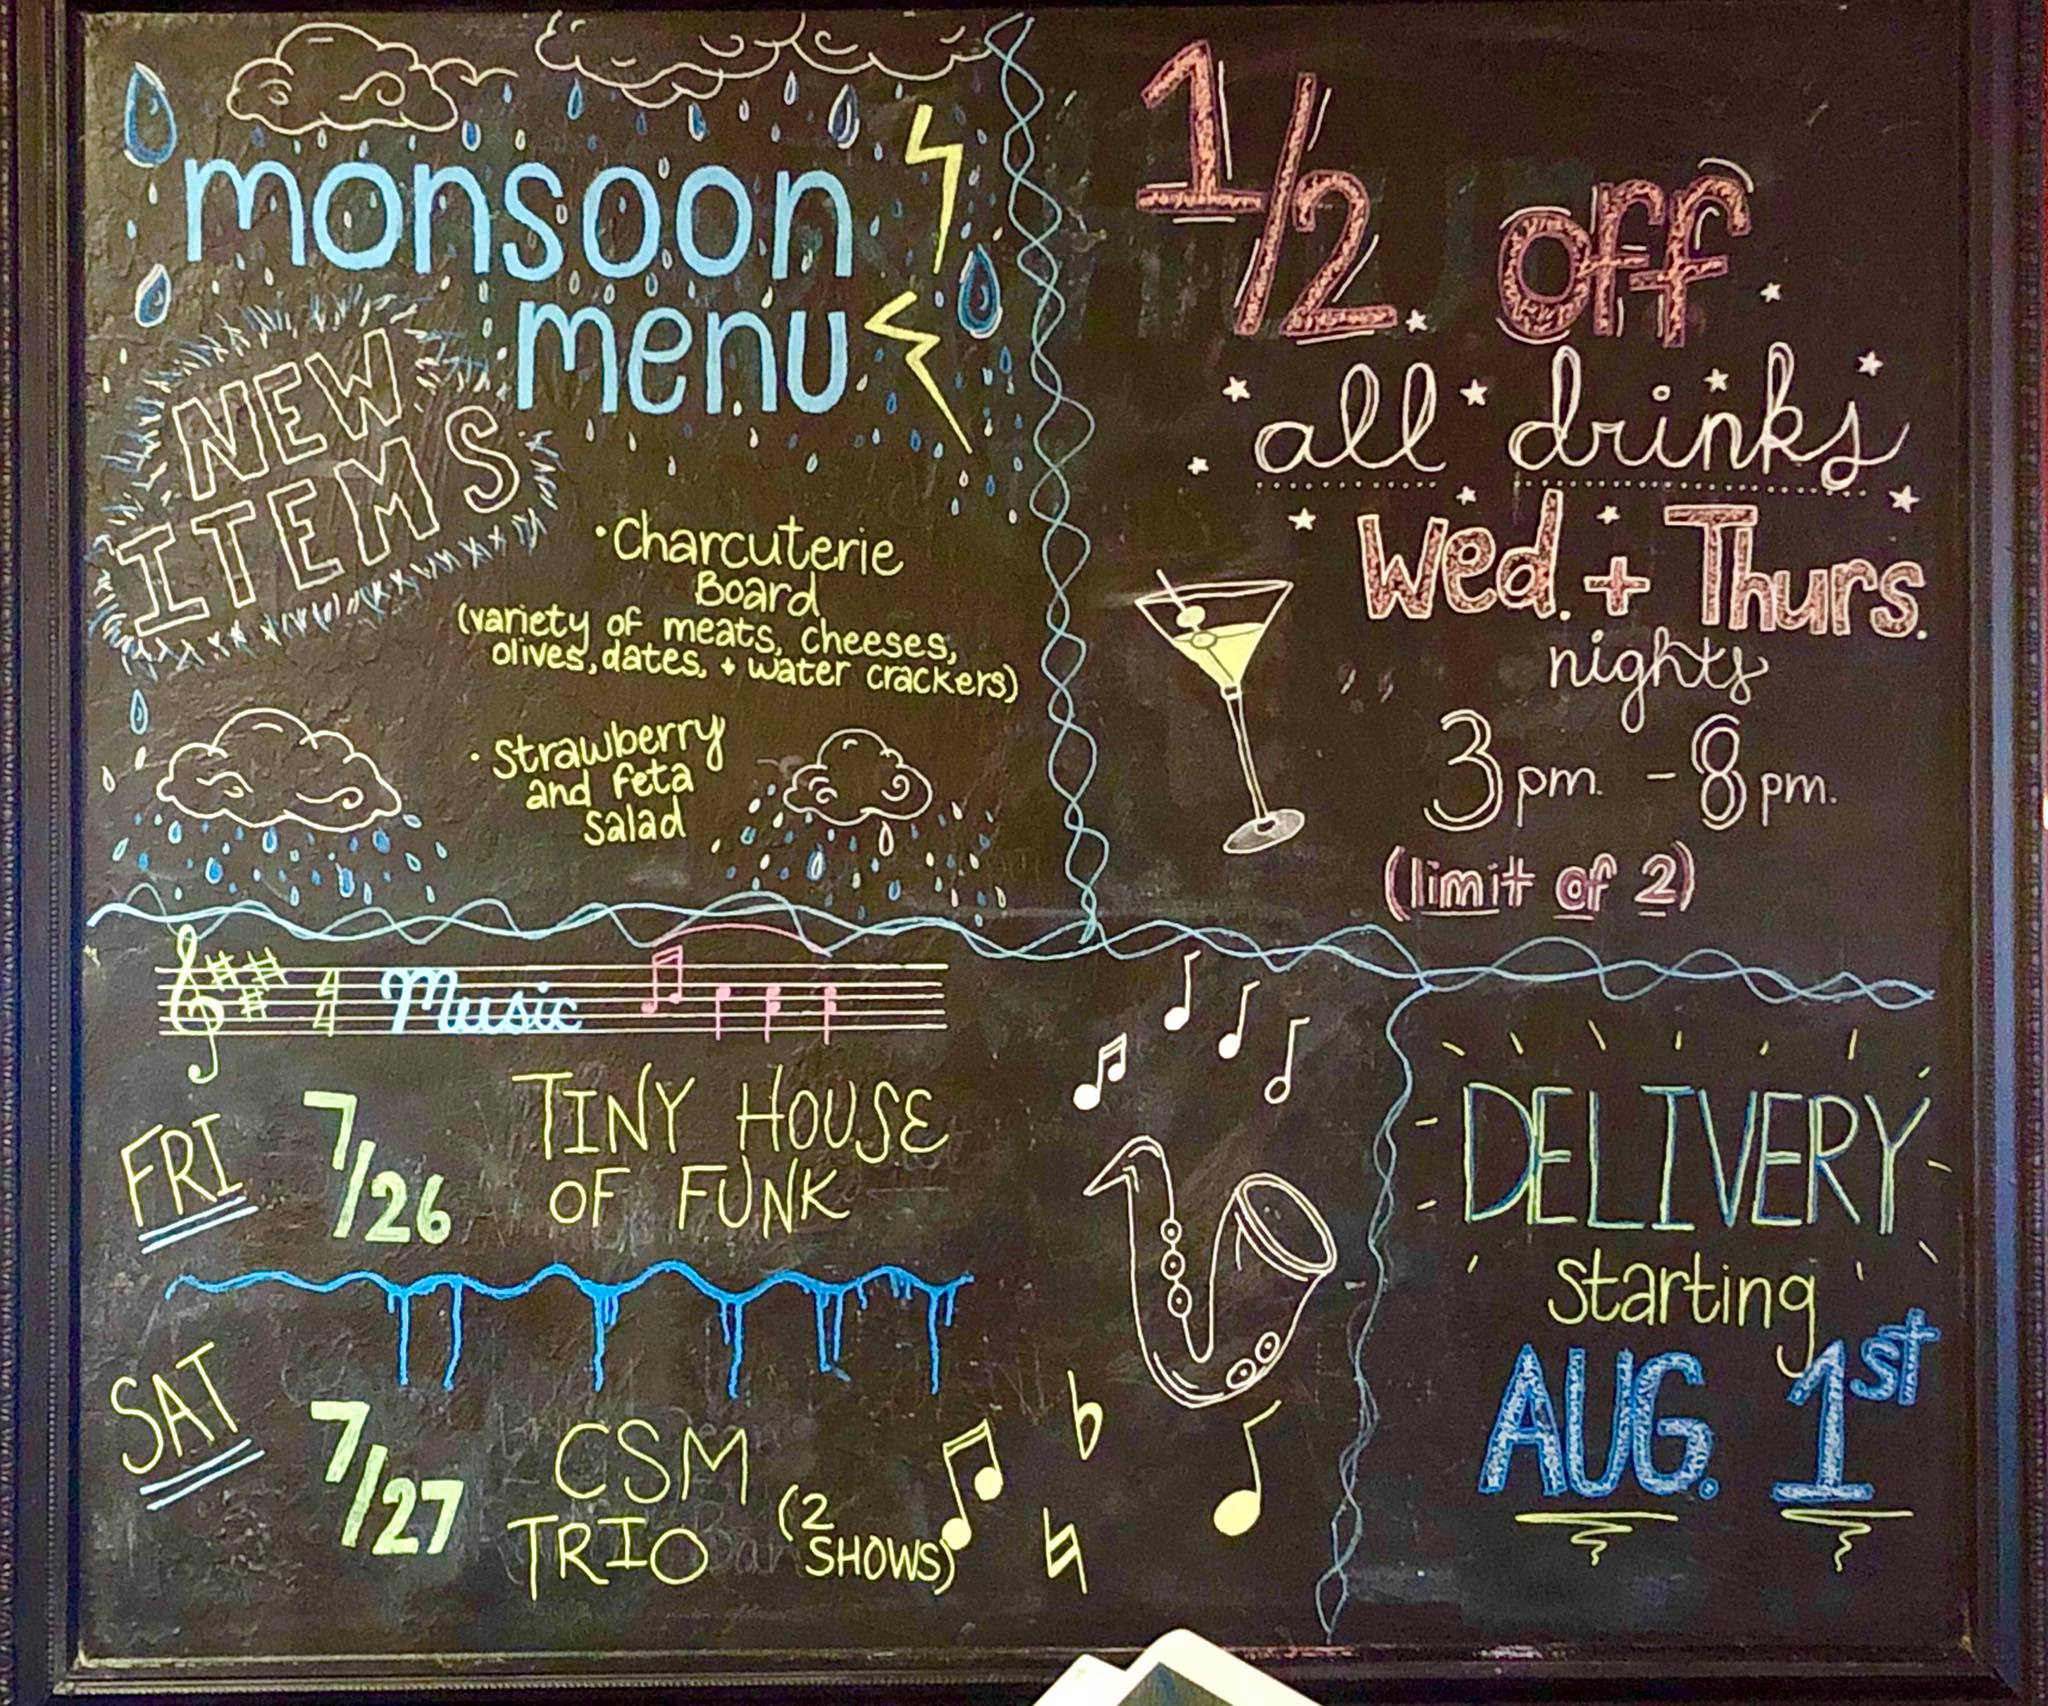 monsoon
menu
NEW
ITEMS
• Charcuterie
Board
(variety of meats, cheeses,
olives, dates, + water crackers)
• Strawberry
and feta
salad
1/2 off
all drinks
Wed. + Thurs.
nights
3pm. - 8pm.
(limit of 2)
4
4
Music
FRI 7/26 TINY HOUSE
OF FUNK
SAT 7/27 CSM
TRIO (2
SHOWS)
DELIVERY
starting
AUG. 1st